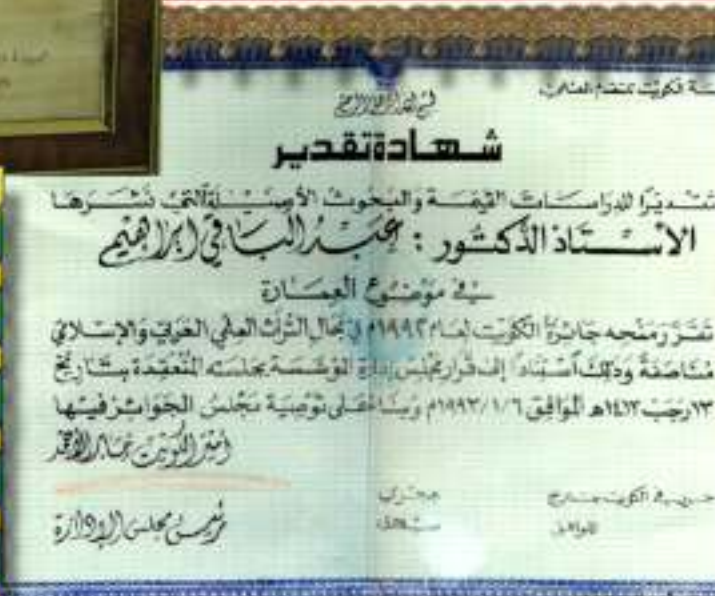 الكويت للتقدم العلمي
بسم الله الرحمن الرحيم
شهادة تقدير
تقديرًا للدراسات القيمة والبحوث الأصيلة التي نشرها
الأستاذ الدكتور : عبد الباقي ابراهيم
في موضوع العمارة
تقرر منحه جائزة الكويت لعام ١٩٩٢م في مجال التراث العلمي العربي والإسلامي
مناصفة وذلك استنادًا إلى قرار مجلس إدارة المؤسسة بجلسته المنعقدة بتاريخ
١٣ رجب ١٤١٣هـ الموافق ١٩٩٣/١/٦م وبناءً على توصية مجلس الجوائز فيها
أمير الكويت جابر الأحمد
رئيس مجلس الإدارة
الكويت
هجري
الموافق